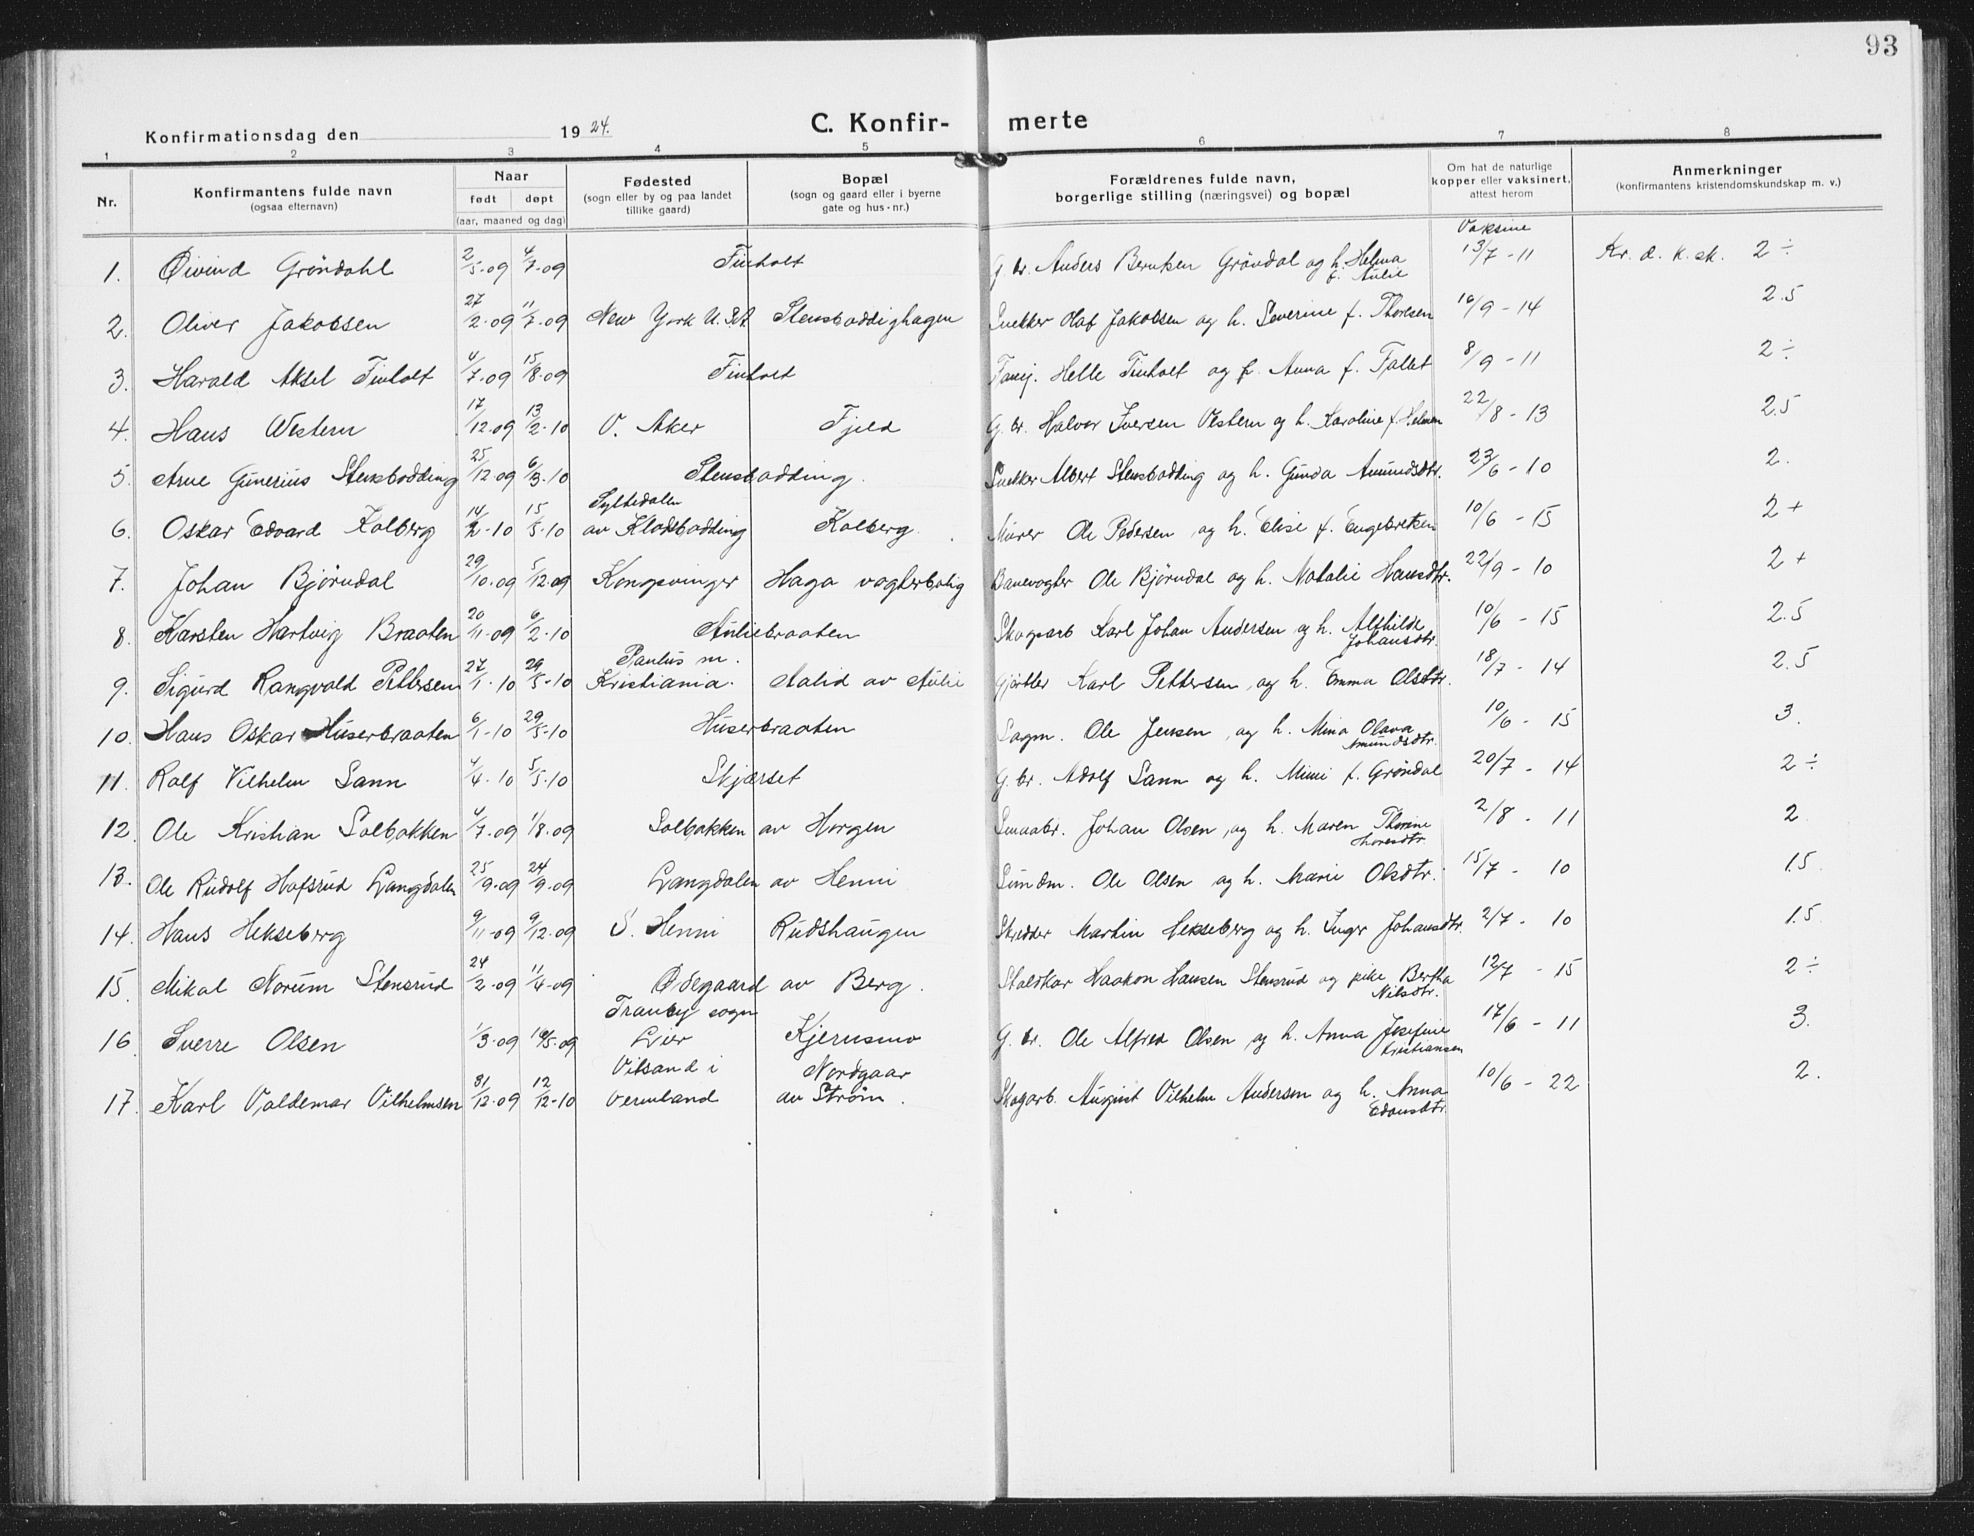 93
Konfirmationsdag den 1924. C. Konfir- merte
1 2 3 4 5 6 7 8
Nr. Konfirmantens fulde navn (ogsaa efternavn) Naar født døpt (aar, maaned og dag) Fødested (sogn eller by og paa landet tillike gaard) Bopæl (sogn og gaard eller i byerne gate og hus-nr.) Forældrenes fulde navn, borgerlige stilling (næringsvei) og bopæl Om hat de naturlige kopper eller vaksinert, attest herom Anmerkninger (konfirmantens kristendomskundskap m. v.)
Vaksine
1. Øivind Gröndahl 2/5-09 4/7-09 Finholt G. br. Anders Berntsen Gröndal og h. Helma f. Aulie 13/7-11 Kr. d. k. sk. 2÷
2. Oliver Jakobsen 27/2-09 11/7-09 New York U.S.A Stensboddighagen Snekker Olaf Jakobsen og h. Severine f. Thoresen 10/9-14 2.5
3. Harald Aksel Finholt 4/7-09 15/8-09 Finholt Helle Finholt og h. Anna f. Fallet 8/9-11 2÷
4. Hans Western 17/12-09 13/2-10 V. Aker Fjeld G. br. Halvor Iversen Vestern og h. Karoline f. Helmen 22/8-13 2.5
5. Arne Gunerius Stensbødding 25/12-09 6/3-10 Stensbødding Snekker Albert Stensbødding og h. Gunda Amundsdtr. 23/6-10 2.
6. Oskar Edvard Kolberg 14/2-10 15/5-10 Syltedalen av Klodsbødding Kolberg. Murer Ole Pedersen og h. Elise f. Engebretsen 10/6-15 2+
7. Johan Bjørndal 29/10-09 5/12-09 Kongsvinger Haga vogterbolig Banevogter Ole Bjørndal og h. Natalie Hansdtr. 22/9-10 2+
8. Karsten Hartvig Braaten 20/11-09 6/2-10 Auliebraaten Skogsarb Karl Johan Andersen og h. Althilde Johansdtr. 10/6-15 2.5
9. Sigurd Rangvald Pettersen 27/1-10 29/5-10 Paulus m. Kristiania. Aalid av Aulie Gjørtler Karl Pettersen og h. Emma Olsdtr. 18/7-14 2.5
10. Hans Oskar Huserbraaten 6/1-10 29/5-10 Huserbraaten Sagm. Ole Jensen og h. Mina Olava Amundsdtr. 10/6-15 3.
11. Rolf Vilhelm Sann 4/4-10 5/5-10 Skjærset G. br. Adolf Sann og h. Mimi f. Grøndal 20/7-14 2÷
12. Ole Kristian Solbakken 4/7-09 1/8-09 Solbakken av Horgen Smaabr. Johan Olsen og h. Maren Thorine Thoresdtr. 2/8-11 2
13. Ole Rudolf Hofsrud Langdalen 25/9-09 24/9-09 Langdalen av Henni Ole Olsen og h. Marie Olsdtr. 15/7-10 1.5
14. Hans Hekseberg 9/11-09 9/12-09 S. Henni Rudshaugen Skredder Martin Hekseberg og h. Inger Johansdtr. 2/7-10 1.5
15. Mikal Norum Stensrud 24/2-09 11/4-09 Ødegaard av Berg. Staldkar Haakon Hansen Stensrud og pike Bertha Nilsdtr. 12/7-15 2÷
16. Sverre Olsen 1/3-09 /5-09 Tranby sogn Lier Kjernsmo G. br. Ole Alfred Olsen og h. Anna Josefine Kristiansen 17/6-11 3.
17. Karl Valdemar Vilhelmsen 31/12-09 12/12-10 Vitsand i Vermland Nordgaar av Strøm. Skogarb. August Vilhelm Andersen og h. Anna Edvardsdtr. 10/6-22 2.